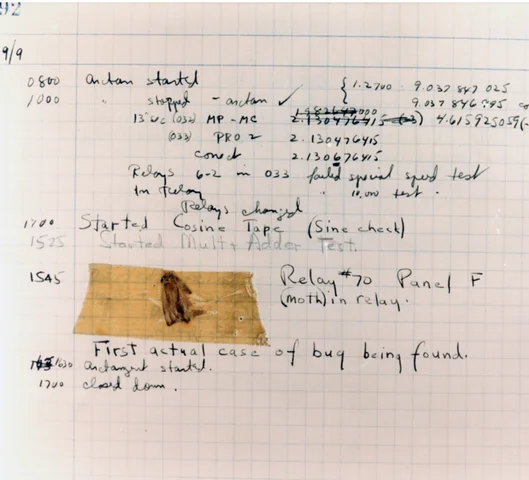 92
9/9
0800 Arctan started { 1.2700 9.037 847 025
1000 " stopped - arctan ✓ 9.037 846 795
13"uc (032) MP - MC 2.130476415 (-3) 4.615925059(-
(033) PRO 2 2.130476415
correct 2.130676415
Relays 6-2 in 033 failed special speed test
In Relay " 10,000 test.
Relays changed
1700 Started Cosine Tape (Sine check)
1525 Started Mult + Adder Test.
1545 Relay #70 Panel F
(moth) in relay.
First actual case of bug being found.
1630 arctangent started.
1700 closed down.